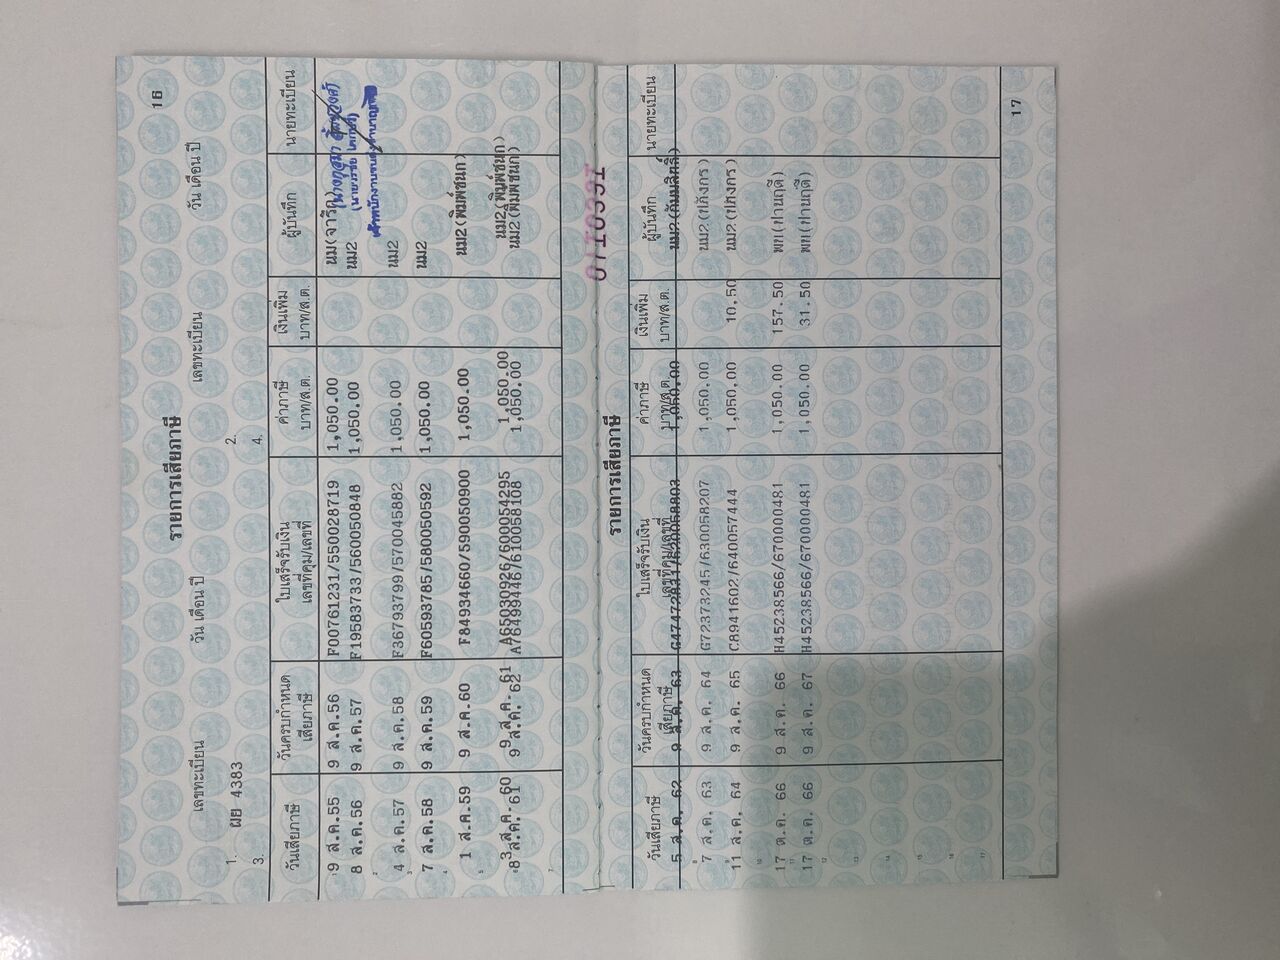 16
รายการเสียภาษี
เลขทะเบียน วัน เดือน ปี เลขทะเบียน วัน เดือน ปี
1. ผย 4383 2.
3. 4.
วันเสียภาษี วันครบกำหนดเสียภาษี ใบเสร็จรับเงิน เลขที่คุม/เลขที่ ค่าภาษี บาท/ส.ต. เงินเพิ่ม บาท/ส.ต. ผู้บันทึก นายทะเบียน
9 ส.ค.55 9 ส.ค.56 F00761231/550028719 1,050.00 นม(จาริก)
8 ส.ค.56 9 ส.ค.57 F19583733/560050848 1,050.00 นม2
4 ส.ค.57 9 ส.ค.58 F36793799/570045882 1,050.00 นม2
7 ส.ค.58 9 ส.ค.59 F60593785/580050592 1,050.00 นม2
1 ส.ค.59 9 ส.ค.60 F84934660/590050900 1,050.00 นม2(พิมพ์ชนก)
3 ส.ค. 60 9 ส.ค. 61 A65030926/600054295 1,050.00 นม2(พิมพ์ชนก)
8 ส.ค. 61 9 ส.ค. 62 A78499446/610058108 1,050.00 นม2(พิมพ์ชนก)
รายการเสียภาษี
วันเสียภาษี วันครบกำหนดเสียภาษี ใบเสร็จรับเงิน เลขที่คุม/เลขที่ ค่าภาษี บาท/ส.ต. เงินเพิ่ม บาท/ส.ต. ผู้บันทึก นายทะเบียน
5 ส.ค. 62 9 ส.ค. 63 1,050.00
7 ส.ค. 63 9 ส.ค. 64 G72373245/630058207 1,050.00
11 ส.ค. 64 9 ส.ค. 65 C89416027/640057444 1,050.00 10.50
17 ต.ค. 66 9 ส.ค. 66 H45238566/670000481 1,050.00 157.50
17 ต.ค. 66 9 ส.ค. 67 H45238566/670000481 1,050.00 31.50
17